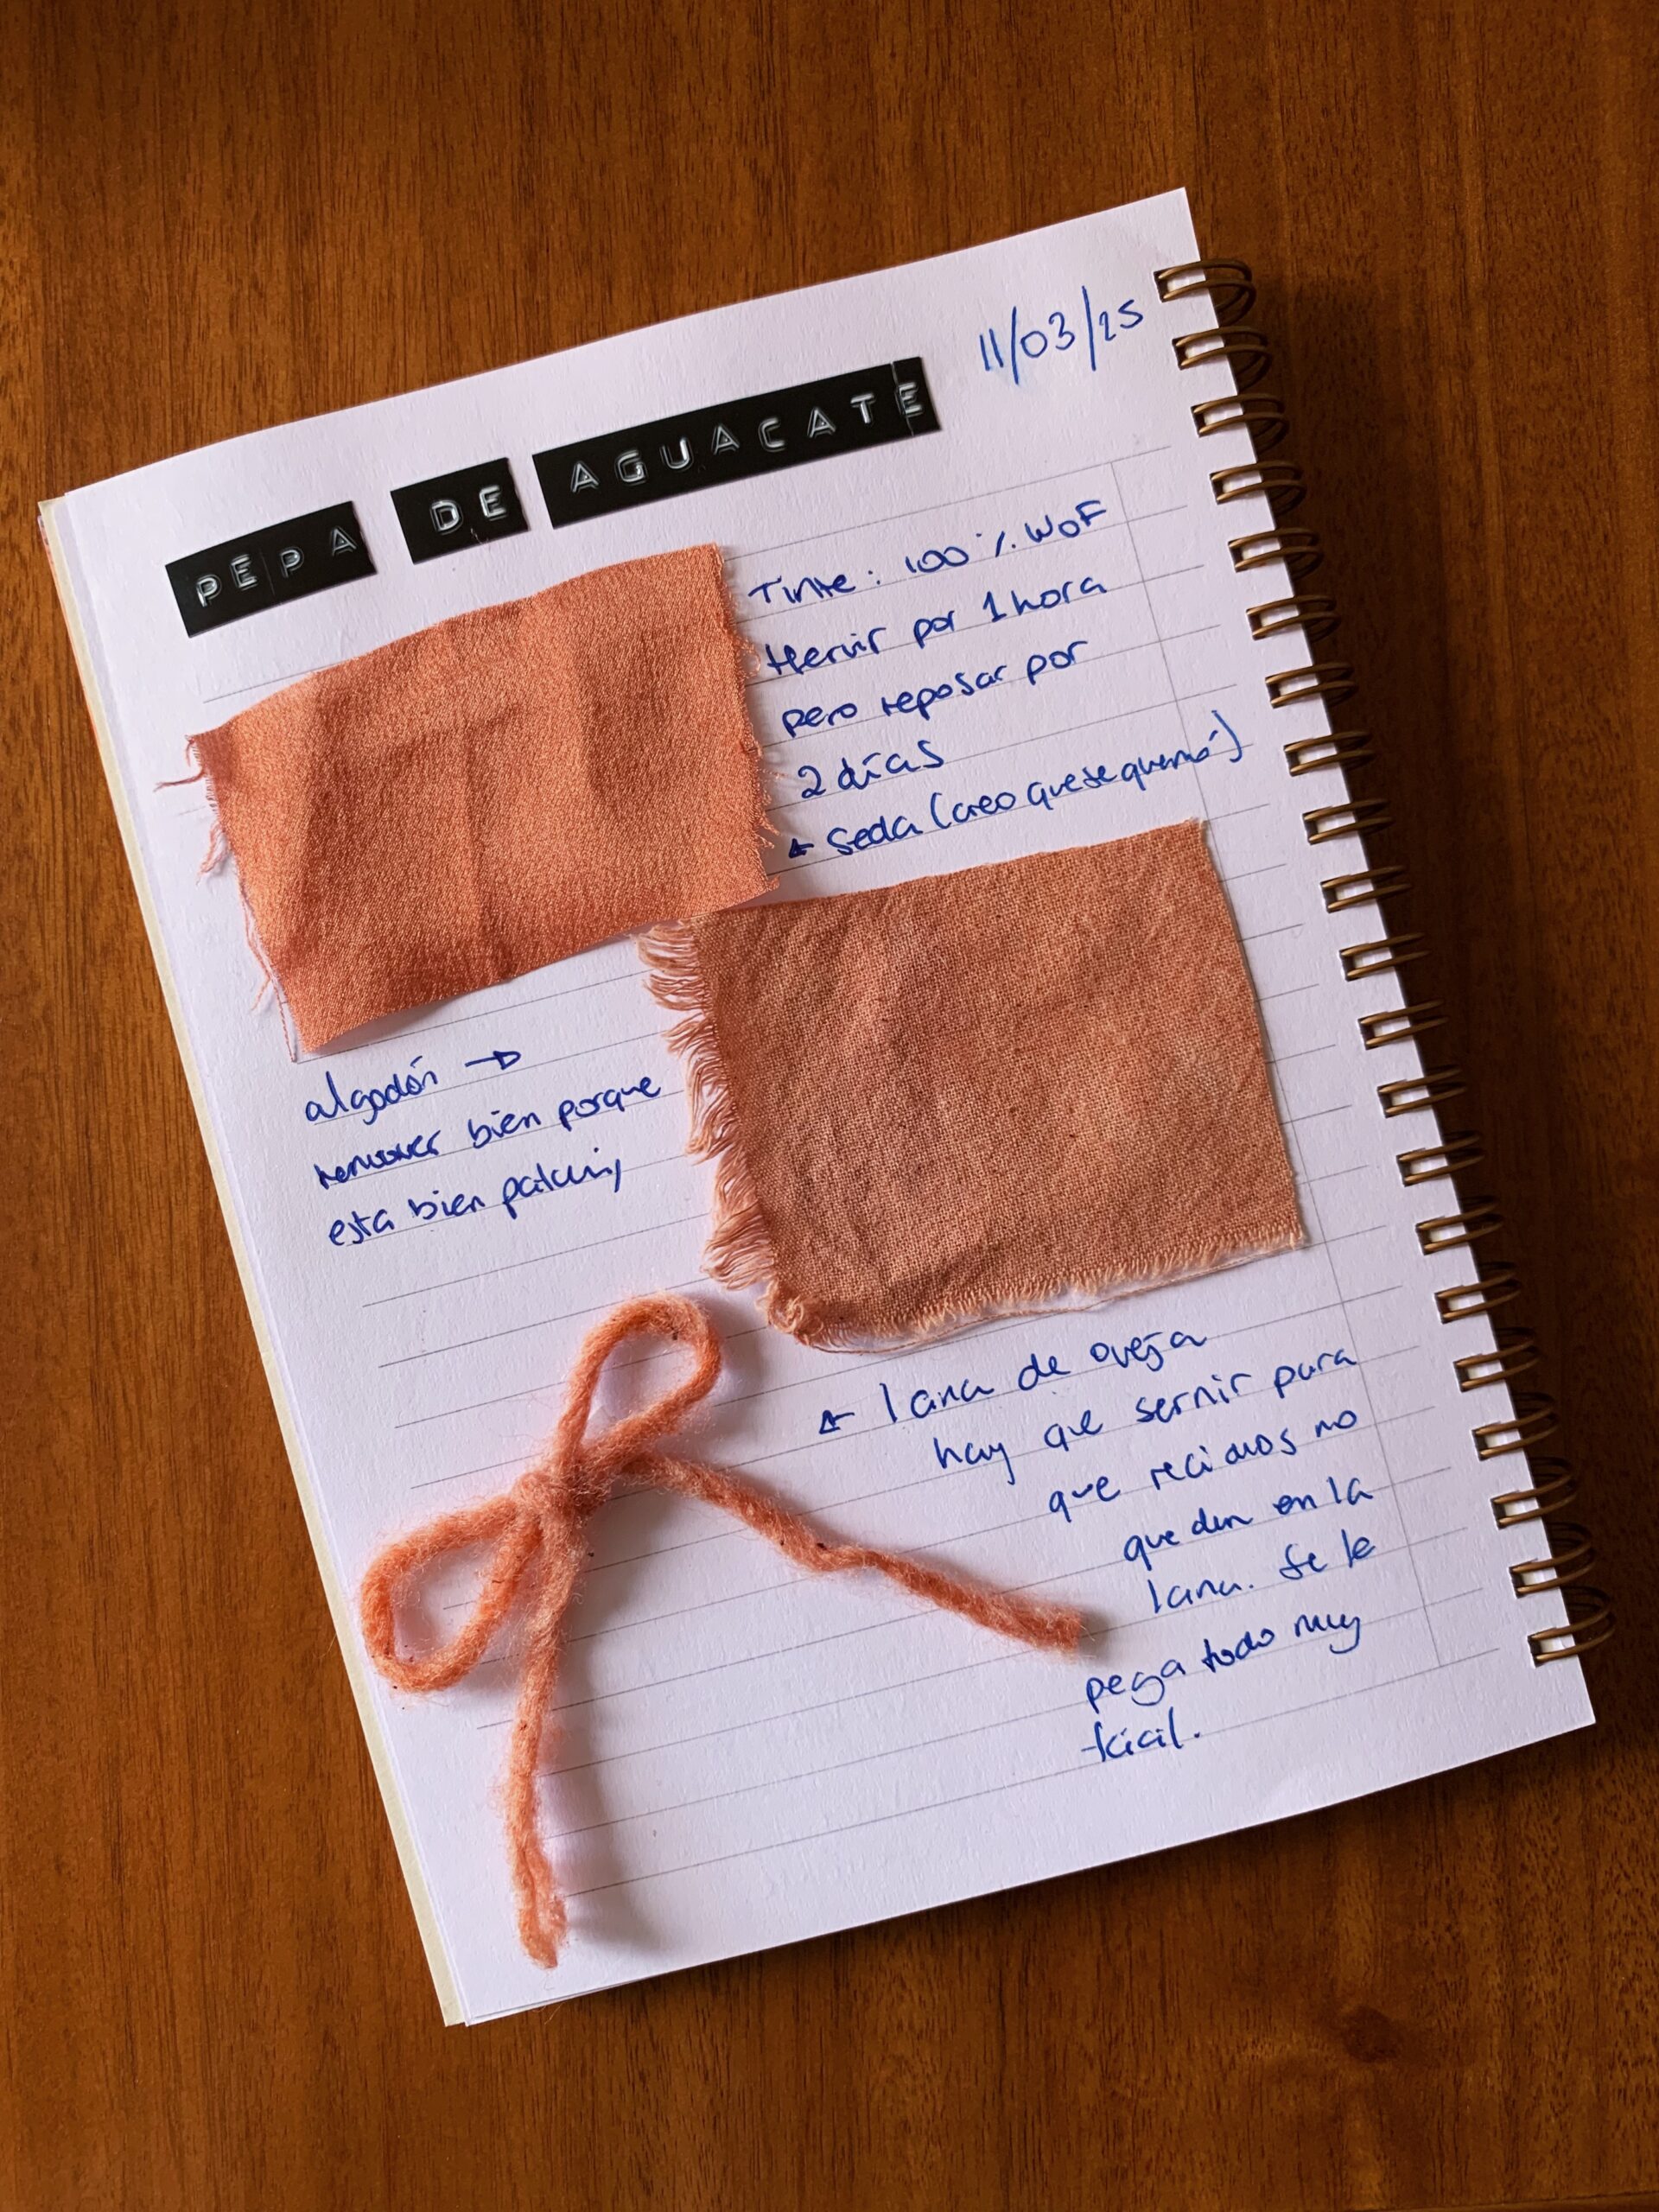 11/03/25
PEPA DE AGUACATE
Tinte: 100% WOF
Hervir por 1 hora
pero reposar por
2 días
← seda (creo que se quemó)
algodón →
remover bien porque
esta bien patchy
← lana de oveja
hay que sernir para
que reciduos no
queden en la
lana. Se le
pega todo muy
fácil.